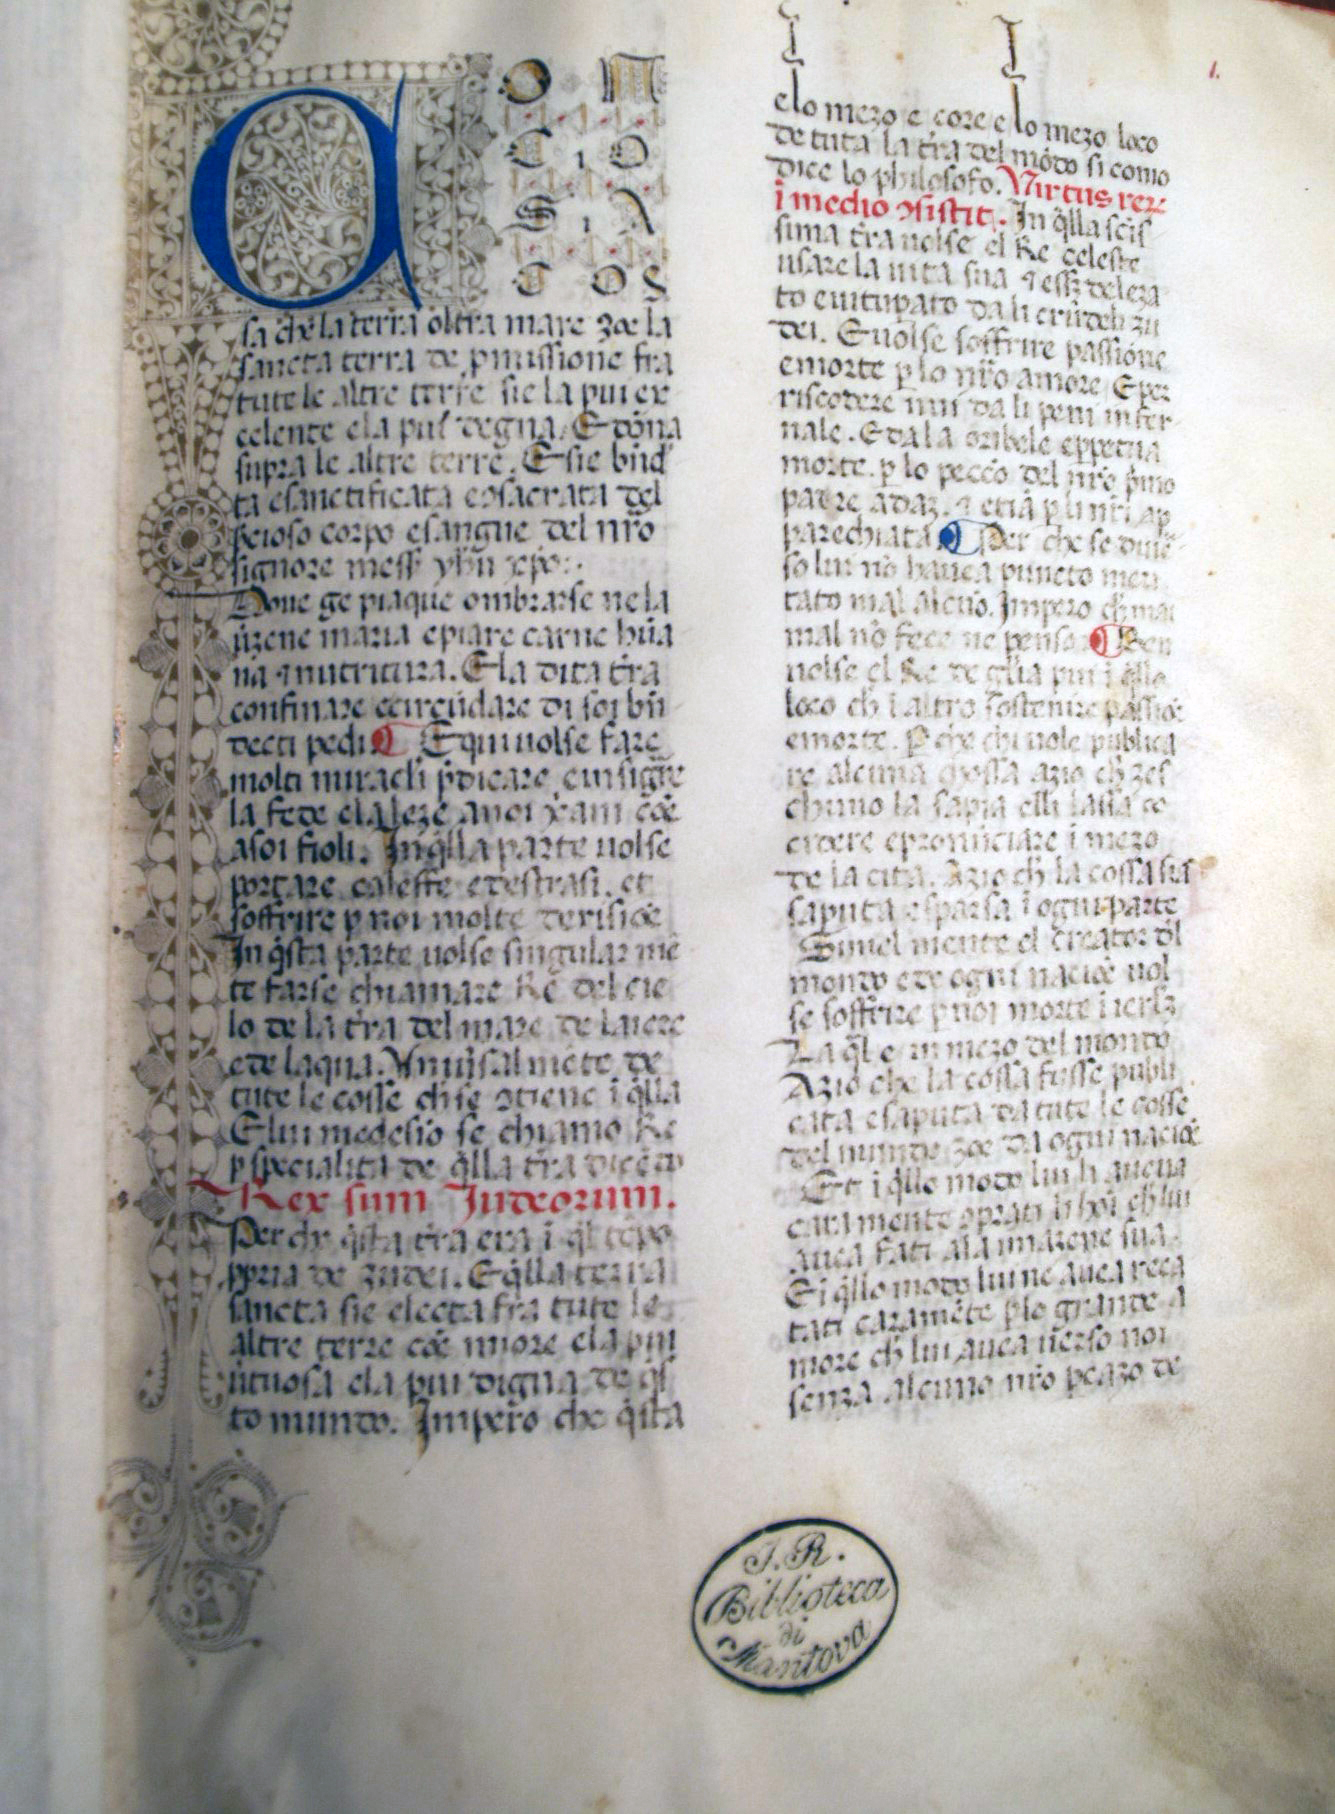 C O M
C I O
S I A
C O S
sa che la terra oltra mare zoe la
sancta terra de pmissione fra
tute le altre terre sie la piu ex
celente ela piu degna. E dōna
supra le altre terre. E sie bn̄d
ta esanctificata eɔsacrata del
pcioso corpo esangue del nr̄o
signore mess yhū xp̄o:.
Doue ge piaque ombrarse ne la
ūzene maria epiare carne hūa
na ⁊ nutritura. E la dita tr̄a
confinare ecircūdare di soi bn̄
decti pedi. E qui uolse fare
molti miracli p̄dicare einsigr̄e
la fede ela leze anoi xani cōe
asoi fioli. In q̄lla parte uolse
portare caleffe edestrasi. et
soffrire p noi molte derisiōe
In q̄sta parte uolse singular mē
te farse chiamare Re del cie
lo de la tr̄a del mare de laiere
ede laqua. Vniuersal mēte de
tute le cosse ch̄ se ɔtiene i q̄lla
E lui medesīo se chiamo Re
p specialita de q̄lla tr̄a dicēdo
Rex sum Iudeorum.
Per che q̄sta tr̄a era i q̄l tēpo
ppria de zudei. E q̄lla terra
sancta sie electa fra tute le
altre terre cōe miore ela piu
ūtuosa ela piu digna de q̄s
to mundo. Impero che q̄sta
e lo mezo e core e lo mezo loco
de tuta la tr̄a del mōdo si como
dice lo philosofo. Virtus rer̄
i medio ɔsistit. In q̄lla scīs
sima tr̄a uolse el Re celeste
usare la uita sua ⁊ ess̄ deleza
to euitupato da li crudeli zu
dei. E uolse soffrire passione
emorte p lo nr̄o amore E per
riscodere nui da li peni infer
nale. E da la oribele eppetua
morte. p lo peccō del nr̄o pimo
padre adaz. ⁊ etiā p li nr̄i ap
parechiata. Per che se diuē
so lui nō hauea puncto meri
tato mal alcūo. Impero ch̄ mai
mal nō fece ne penso. Ben
uolse el Re de glīa piu i q̄llo
loco ch̄ i altro sostenire passiōe
emorte. P che chi uole publica
re alcuna chossa azio ch̄ zes
chuno la sapia elli lassa co
cridere epronūciare i mezo
de la cita. Azio ch̄ la cossa sia
saputa esparsa i ogni parte
Simel mente el creator dl
mondo ede ogni naciōe uol
se soffrire p noi morte i ierlz
La q̄l e in mezo del mondo
Azio che la cossa fusse publi
cata esaputa da tute le cosse
del mundo zoe da ogni naciōe
Et i q̄llo modo lui li aueua
cara mente ɔprati li hōi ch̄ lui
auea fati ala imazene sua
E i q̄llo modo lui ne auea reca
tati caramēte p lo grande a
more ch̄ lui auea ūerso noi
senza alcuno nr̄o peazo de
1.
I. R.
Biblioteca
di
Mantova